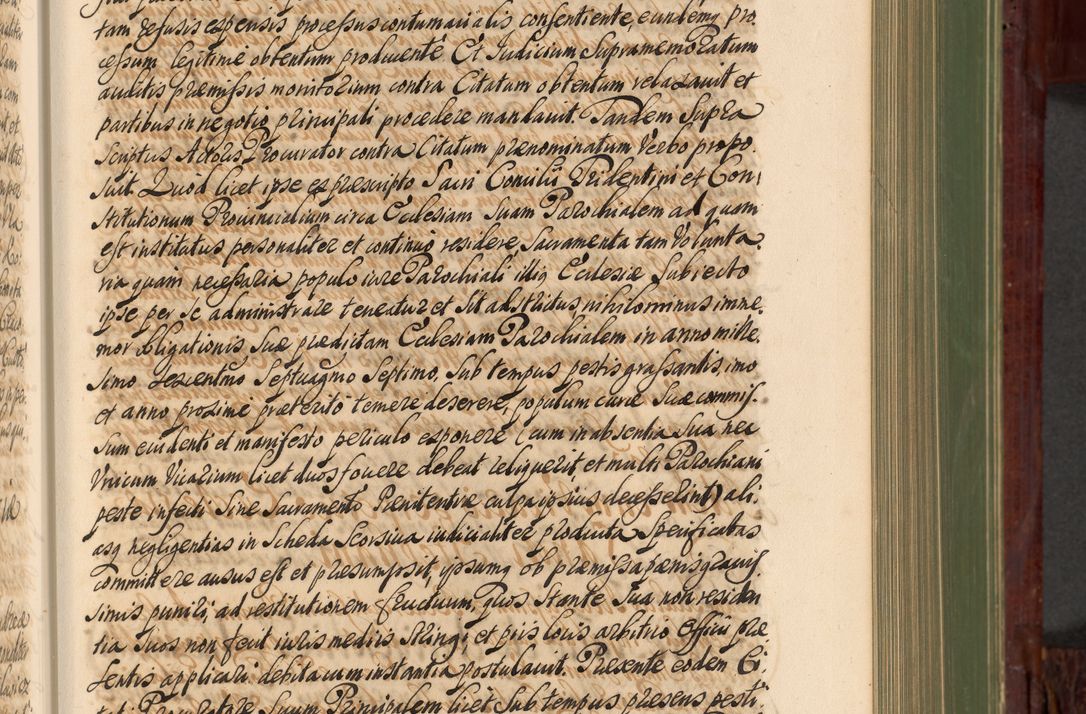 tam refusis expensis processus contumacialis consentiente, eundemq pro
cessum legitime obtentum producente Et Iudicium Supramemoratum
auditis præmissis monitorium contra Citatum obtentum relaxauit et
partibus in negotio principali procedere mandauit. Tandem Supra
scriptus Actoris Procurator contra Citatum prænominatum Verbo propo.
suit. Quod licet ipse ex præscripto Sacri Concilii Tridentini et Con
stitutionum Prouincialium circa Ecclesiam Suam Parochialem ad quam
est institutus personaliter et continuo residere, Sacramenta tam Volunta
ria quam necessaria populo iure Parochiali illiq Ecclesiæ Subiecto
ipse per se administrare teneatur et Sit adstrictus, nihilominus imme
mor obligationis Suæ prædictam Ecclesiam Parochialem in anno mille.
simo sexcentmo Septuagmo Septimo, Sub tempus pestis grassantis, imo
et anno proxime præterito temere deserere, populum curæ Suæ commis.
sum euidenti et manifesto periculo exponere (cum in absentia Sua nec
Vnicum Vicarium licet duos fouere debeat reliquerit, et multi Parochiani
peste infecti Sine Sacramento Pænitentiæ culpa ipsius decesserint) ali.
asq negligentias in Scheda Seorsiua iudicialiter producta Specificatas
committere ausus est et præsumpsit, ipsumq ob præmissa pænis grauis.
simis puniri, ad restitutionem fructuum, quos Stante Sua non residen
tia Suos non fecit iuris mediis Stringi, et piis locis arbitrio Officii præ
sentis applicari debita cum instantia postulauit. Præsente eodem Ci.
tati Procuratore Suum Principalem licet Sub tempus præsens pesti